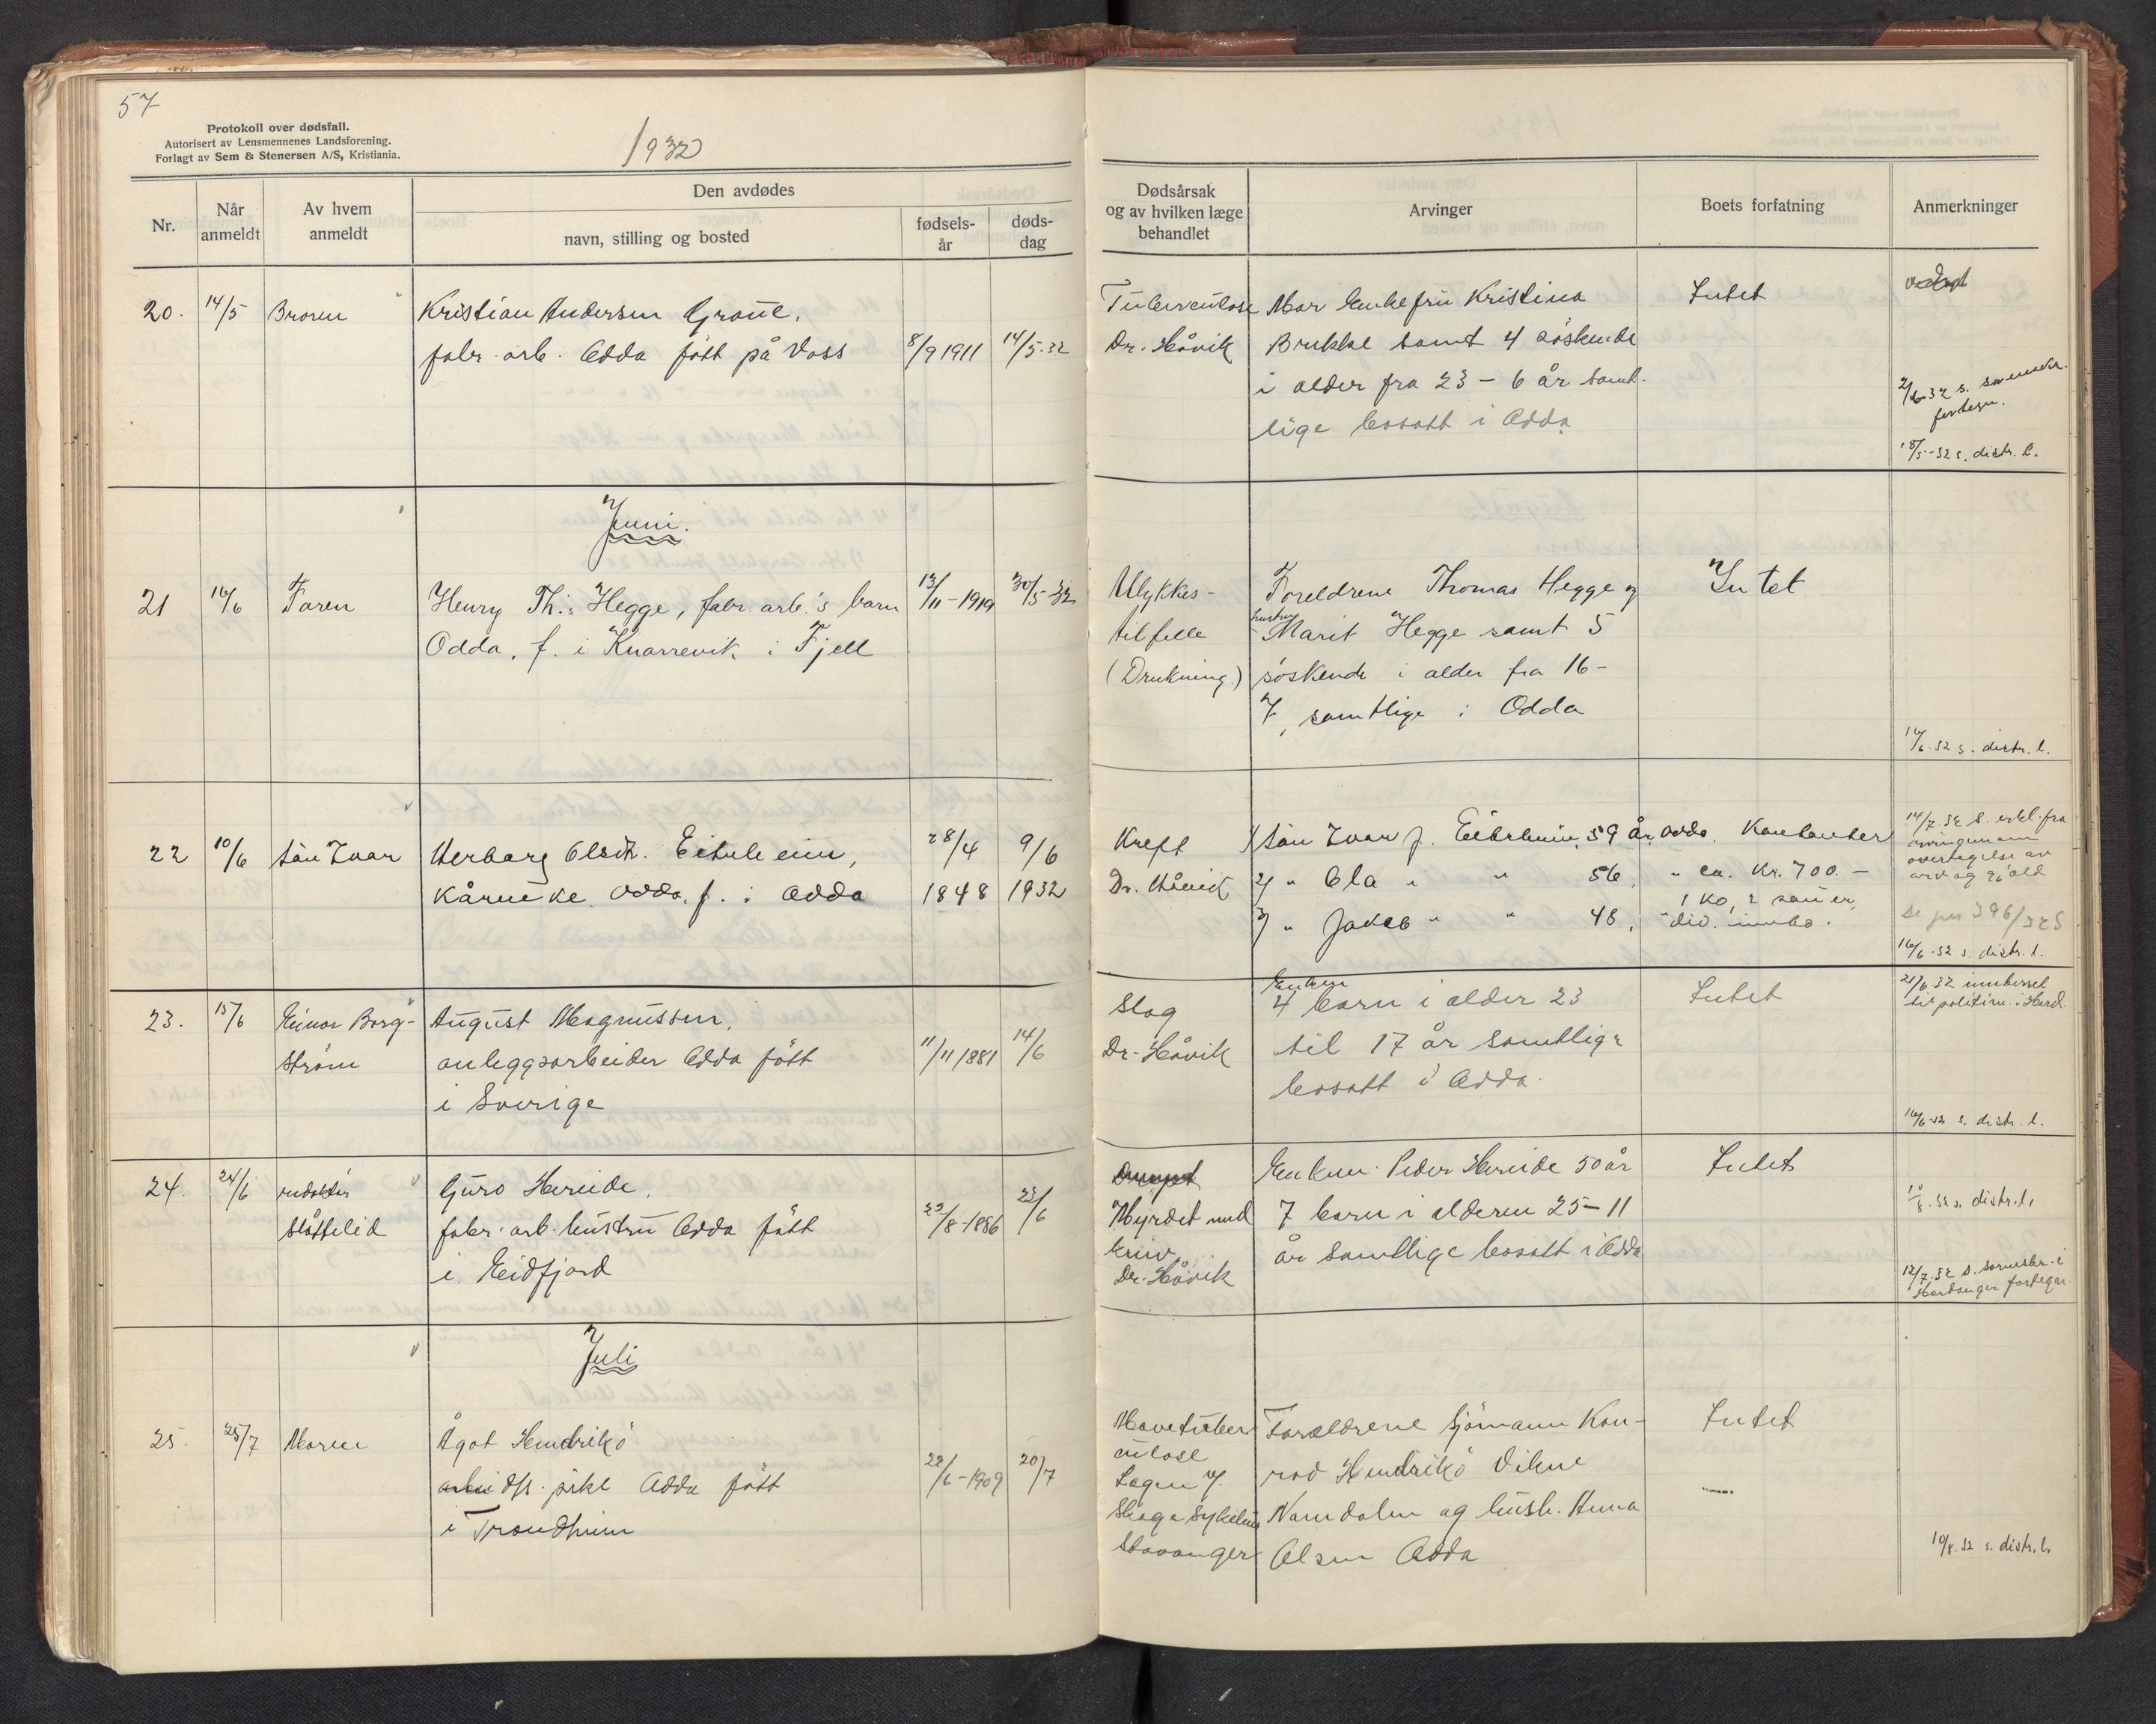 57
Protokoll over dødsfall.
Autorisert av Lensmennenes Landsforening.
Forlagt av Sem & Stenersen A/S, Kristiania.
1932
Nr.
Når anmeldt
Av hvem anmeldt
Den avdødes
navn, stilling og bosted
fødsels-år
døds-dag
Dødsårsak og av hvilken læge behandlet
Arvinger
Boets forfatning
Anmerkninger
20. 14/5 Broren
Kristian Andersen
fabr. arb. Odda født på Voss 8/9 1911 14/5-32
Tuberculose
Dr. Håvik
Mor Enkefru Kristina
Brekke samt 4 søskende
i alder fra 23 - 6 år samt-
lige bosatt i Odda
Intet
2/6-32 s.
18/5-32 s. distr. l.
Juni.
21 16/6 Faren
Henry Th: Hegge, fabr. arb.'s barn 13/11-1919 30/5-32
Odda, f. i Knarrevik i Fjell
Ulykkes-
tilfelle
(Drukning.)
Foreldrene Thomas Hegge og
hustru
Marit Hegge samt 5
søskende i alder fra 16-
7, samtlige i Odda
Intet
16/6-32 s. distr. l.
22 10/6 Søn Ivar
Herborg Olsdt. Eitrheim, 28/4 9/6
Odda, f. i Odda 1848 1932
Kreft
Dr. Håvik
1/ Søn Ivar J. Eitrheim, 59 år, Odda
2/ " Ola " " 56, "
3/ " Jakob " " 48, "
Kontanter
ca. Kr. 700.-
1 ko, 2 sauer,
div. innbo.
14/7-32 s. erkl. fra
arvingene om
overtagelse av
arv og gjæld
16/6-32 s. distr. l.
23. 15/6 Einar Borg-
strøm
August Magnussen,
anleggsarbeider Odda født 11/11 1881 14/6
i Sverige
Slag
Dr. Håvik
Enken
4 barn i alder 23
til 17 år samtlige
bosatt i Odda.
Intet
21/6 32 innberset
til politim. i Hard.
16/6-32 s. distr. l.
24. 24/6 redaktør
Slåttelid
Guro Hereide,
fabr. arb. hustru Odda født 23/8-1886 23/6
i Eidfjord
Drept
Myrdet med
kniv
Dr. Håvik
Enkem. Peder Hereide 50 år
7 barn i alderen 25-11
år samtlige bosatt i Odda
Intet
10/8. 32 s. distr. l.
12/7-32 s. sorenskr. i
Hardanger fortegn.
Juli
25. 25/7 Moren
Ågot Hendrikö
arbeids. pike Odda født 22/6-1909 20/7
i Trondheim
Mavetuber-
culose
Lægen v/.
Sykehus
Stavanger
Foreldrene Sjømann Kon-
rad Hendrikö
Namdalen og hustr. Anna
Olsen Odda
Intet
10/8. 32 s. distr. l.